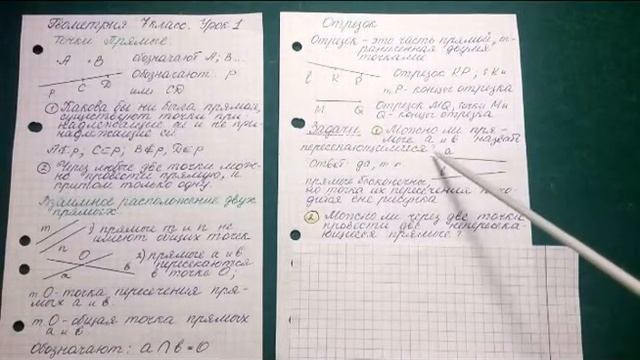 Геометрия 7 класс. Урок 1
Точки Прямые
A B
обозначают A; B...
P C D
Обозначают P
или CD
① Какова бы ни была прямая,
существуют точки при-
надлежащие ей и не при-
надлежащие ей
A∉p, C∈p, B∉p, D∈p
② Через любые две точки мож-
но провести прямую, и
притом только одну.
Взаимное расположение двух
прямых
m n
1) прямые m и n не
имеют общих точек
O a в
2) прямые a и в
пересекаются
в точке O;
т. O - точка пересечения пря-
мых a и в
т. O - общая точка прямых
a и в
Обозначают: a ∩ в = O
Отрезок
Отрезок - это часть прямой, о-
граниченная двумя
точками
l K P
Отрезок KP, т. K и
т. P - концы отрезка
M Q
Отрезок MQ, точки M и
Q - концы отрезка
Задачи
① Можно ли пря-
мые a и в назвать
пересекающимися?
a
Ответ: да, т.к
прямые бесконечны
но точка их пересечения
дится вне рисунка
② Можно ли через две точки
провести две непересека-
ющиеся прямые?